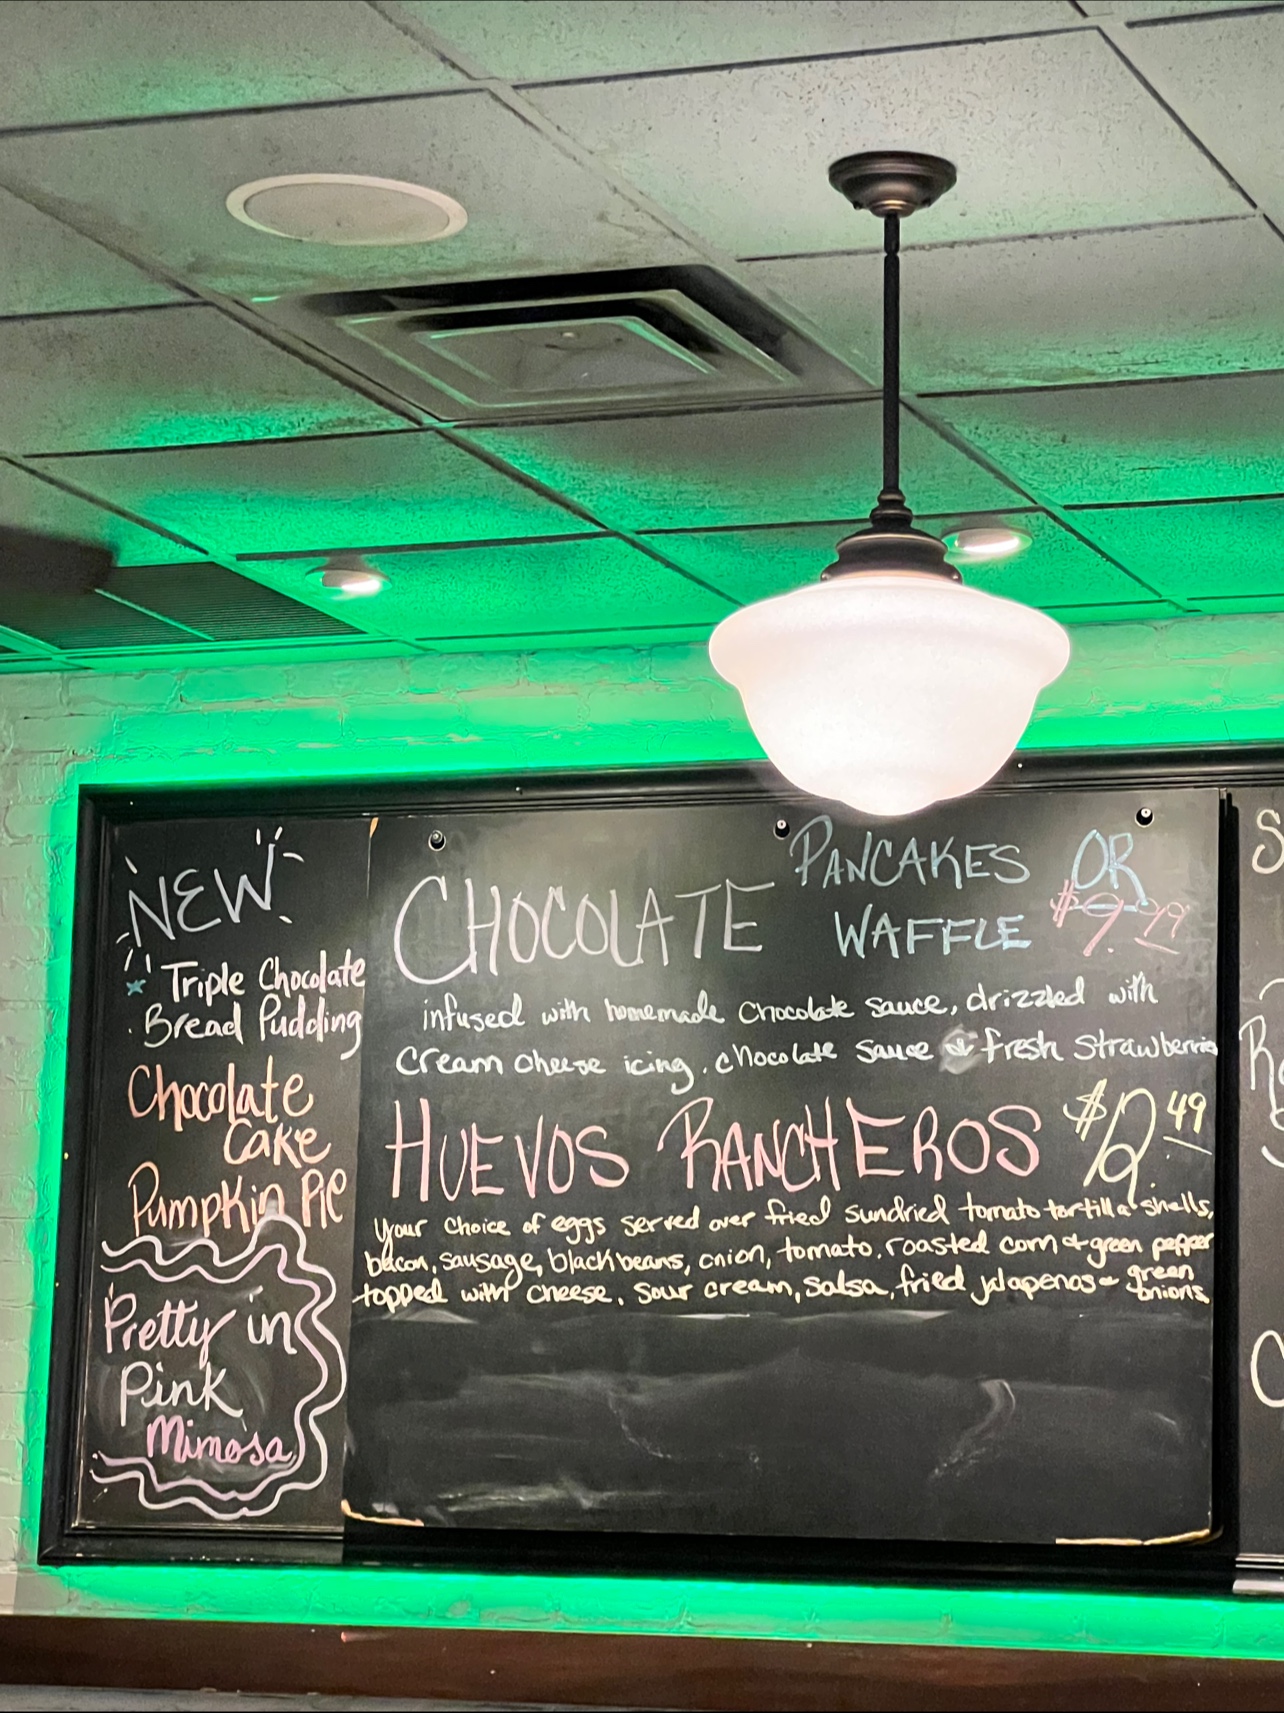 NEW
Triple Chocolate
Bread Pudding
Chocolate
Cake
Pumpkin Pie
Pretty in
Pink
Mimosa
CHOCOLATE PANCAKES OR
WAFFLE $9.99
infused with homemade chocolate sauce, drizzled with
cream cheese icing, chocolate sauce & fresh strawberries
HUEVOS RANCHEROS $12.49
Your choice of eggs served over fried sundried tomato tortilla shells,
bacon, sausage, black beans, onion, tomato, roasted corn & green pepper
topped with cheese, sour cream, salsa, fried jalapenos & green
onions